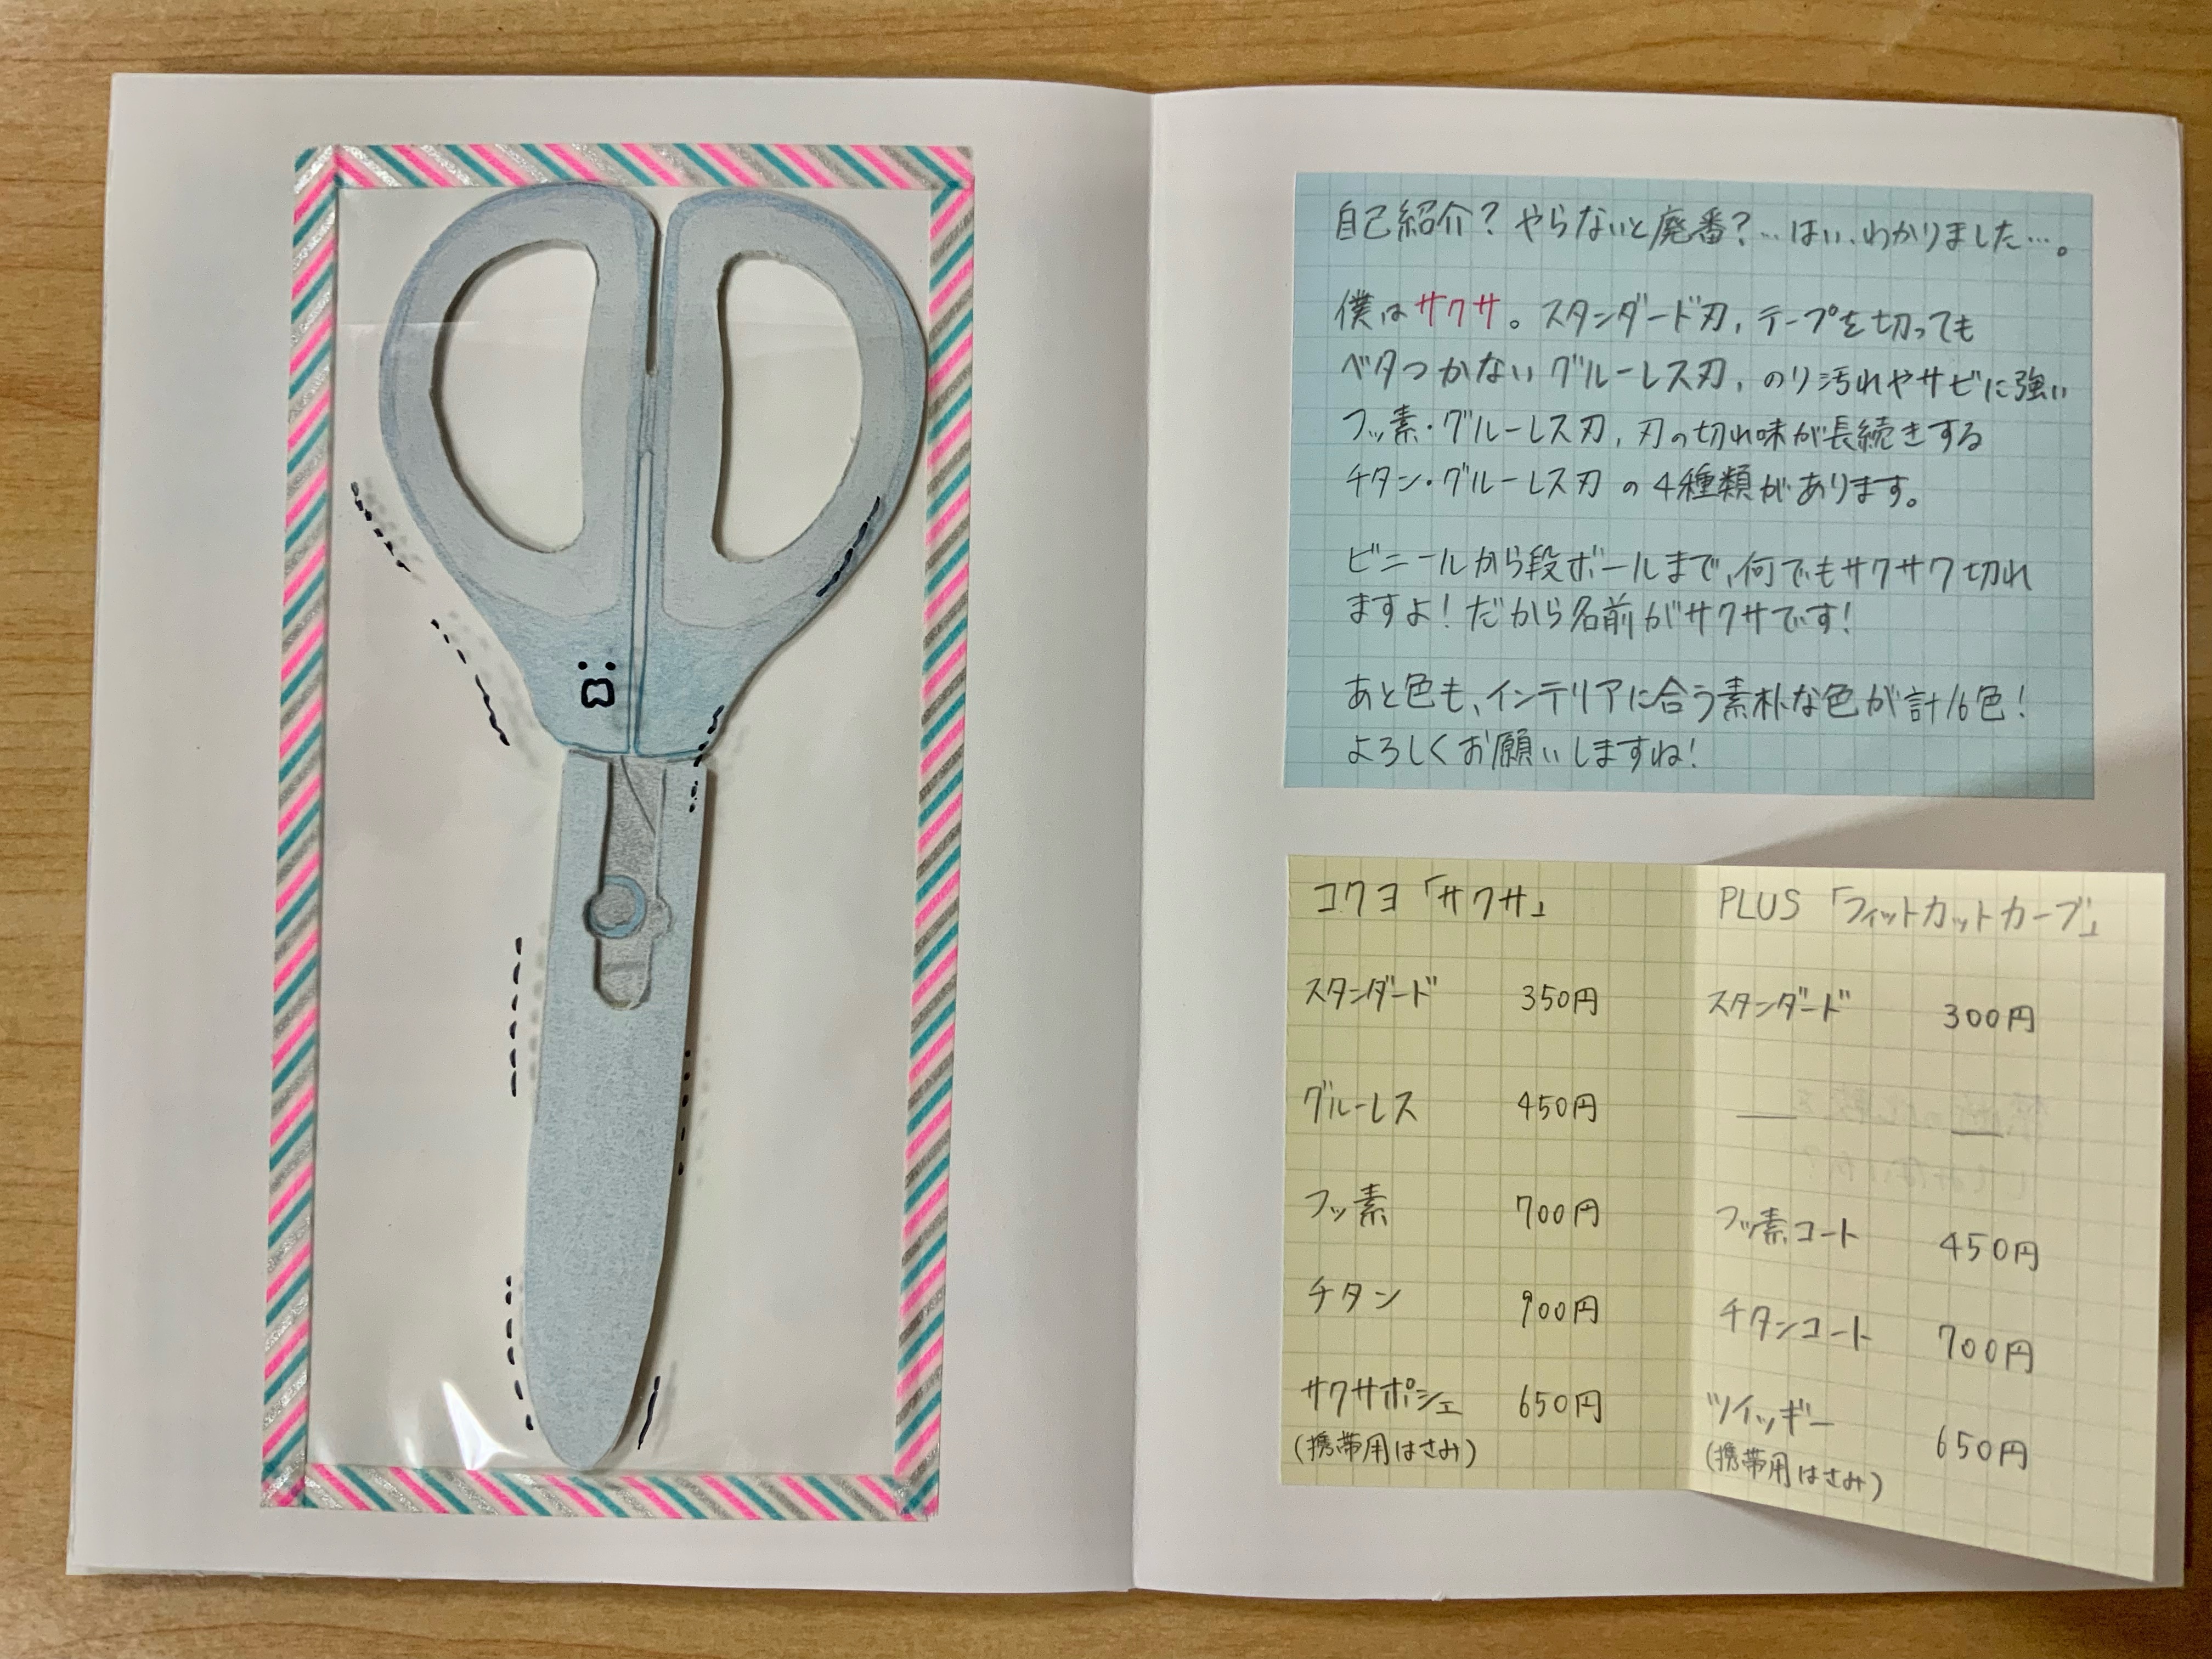 自己紹介？やらないと廃番？…はい、わかりました…。
僕はサクサ。スタンダード刃，テープを切っても
ベタつかないグルーレス刃，のり汚れやサビに強い
フッ素・グルーレス刃，刃の切れ味が長続きする
チタン・グルーレス刃の4種類があります。
ビニールから段ボールまで、何でもサクサク切れ
ますよ！だから名前がサクサです！
あと色も、インテリアに合う素朴な色が計16色！
よろしくお願いしますね！
コクヨ「サクサ」
スタンダード 350円
グルーレス 450円
フッ素 700円
チタン 900円
サクサポシェ 650円
(携帯用はさみ)
PLUS「フィットカットカーブ」
スタンダード 300円
— —
フッ素コート 450円
チタンコート 700円
ツイッギー 650円
(携帯用はさみ)